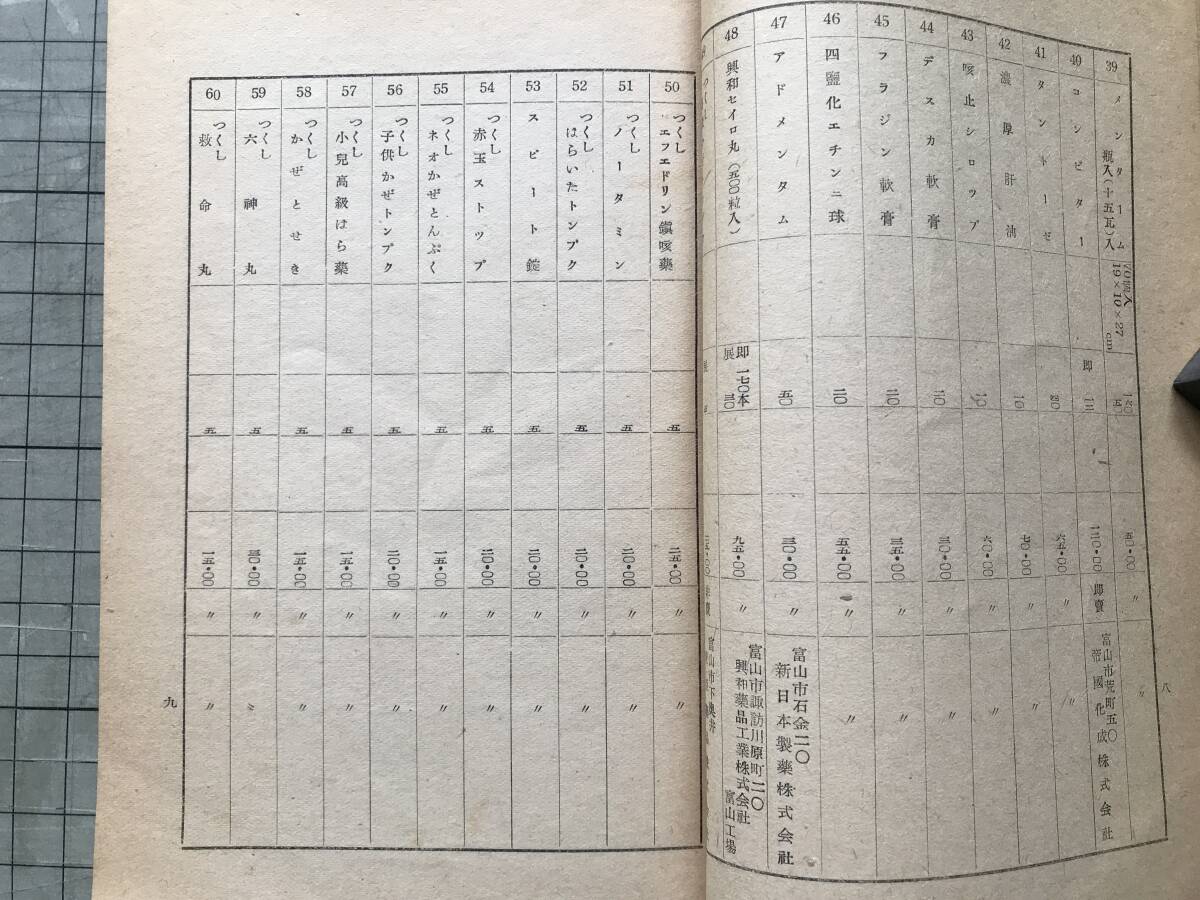 39 メンターム 瓶入(十五瓦)入 19×10×27cm 五〇・〇〇 〃 〃
40 コンビター 即 一三 一二〇・〇〇 即賣 富山市荒町五〇 帝國化成株式会社
41 タントーゼ 六五・〇〇 〃 〃
42 濃厚肝油 一〇 七〇・〇〇 〃 〃
43 咳止シロップ 一〇 六〇・〇〇 〃 〃
44 デスカ軟膏 一〇 三〇・〇〇 〃 〃
45 フラジン軟膏 二〇 三五・〇〇 〃 〃
46 四鹽化エチンニ球 二〇 五五・〇〇 〃 〃
47 アドメンタム 五〇 三〇・〇〇 〃 富山市石金二〇 新日本製薬株式会社
48 興和セイロ丸(五〇〇粒入) 即一七〇本 展 二〇 九五・〇〇 〃 富山市諏訪川原町二〇 興和藥品工業株式会社富山工場
八
50 つくしエフエドリン鎭咳藥 五 二五・〇〇 〃 〃
51 つくしノータミン 五 二〇・〇〇 〃 〃
52 つくしはらいたトンプク 五 二〇・〇〇 〃 〃
53 スピート錠 五 二〇・〇〇 〃 〃
54 つくし赤玉ストップ 五 二〇・〇〇 〃 〃
55 つくしネオかぜとんぷく 五 一五・〇〇 〃 〃
56 つくし子供かぜトンプク 五 二〇・〇〇 〃 〃
57 つくし小兒高級はら藥 五 一五・〇〇 〃 〃
58 つくしかぜとせき 五 一五・〇〇 〃 〃
59 つくし六神丸 五 三〇・〇〇 〃 〃
60 つくし救命丸 五 一五・〇〇 〃 〃
九